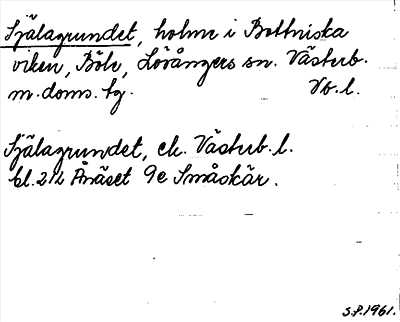 Själagrundet, holme i Bottniska
viken, Böle, Lövångers sn. Västerb.
m. doms. tg. Vb. l.
Själagrundet, ek. Västerb. l.
bl. 212 Ånäset 9e Småskär.
S.P. 1961.